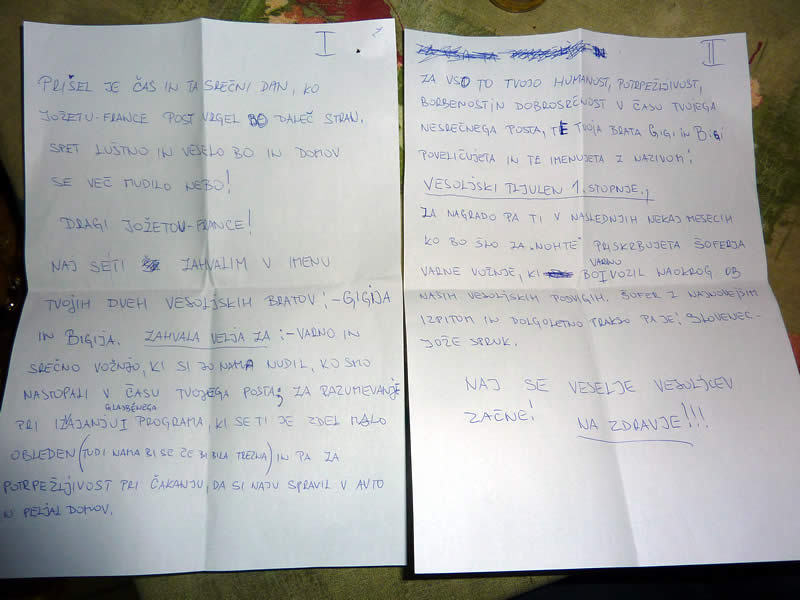 I
PRIŠEL JE ČAS IN TA SREČNI DAN, KO
JOŽETU-FRANCE POST VRGEL BO DALEČ STRAN.
SPET LUŠTNO IN VESELO BO IN DOMOV
SE VEČ MUDILO NEBO!
DRAGI JOŽETOV-FRANCE!
NAJ SE TI ZAHVALIM V IMENU
TVOJIH DVEH VESOLJSKIH BRATOV:-GIGIJA
IN BIGIJA. ZAHVALA VELJA ZA:-VARNO IN
SREČNO VOŽNJO, KI SI JO NAMA NUDIL, KO SMO
NASTOPALI V ČASU TVOJEGA POSTA; ZA RAZUMEVANJE
GLASBENEGA
PRI IZAJANJU PROGRAMA, KI SE TI JE ZDEL MALO
OBLEDEN (TUDI NAMA BI SE ČE BI BILA TREZNA) IN PA ZA
POTRPEŽLJIVOST PRI ČAKANJU, DA SI NAJU SPRAVIL V AVTO
IN PELJAL DOMOV.
II
ZA VSO TO TVOJO HUMANOST, POTRPEŽLJIVOST,
BORBENOST IN DOBROSRČNOST V ČASU TVOJEGA
NESREČNEGA POSTA, TE TVOJA BRATA GIGI IN BIGI
POVELIČUJETA IN TE IMENUJETA Z NAZIVOM:
VESOLJSKI TLJULEN 1. STOPNJE.,
ZA NAGRADO PA TI V NASLEDNJIH NEKAJ MESECIH
KO BO ŠLO ZA "NOHTE" PRISKRBUJETA ŠOFERJA
VARNO
VARNE VOŽNJE, KI BO VOZIL NAOKROG OB
NAŠIH VESOLJSKIH PODVIGIH. ŠOFER Z NAJNOVEJŠIM
IZPITOM IN DOLGOLETNO TRAKSO PA JE: SLOVENEC-
JOŽE SPRUK.
NAJ SE VESELJE VESOLJCEV
ZAČNE!
NA ZDRAVJE!!!